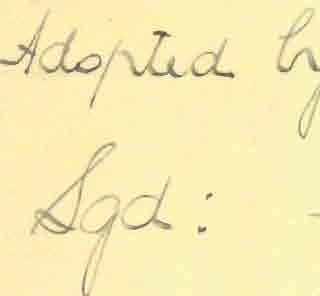 Adopted by
Sgd: